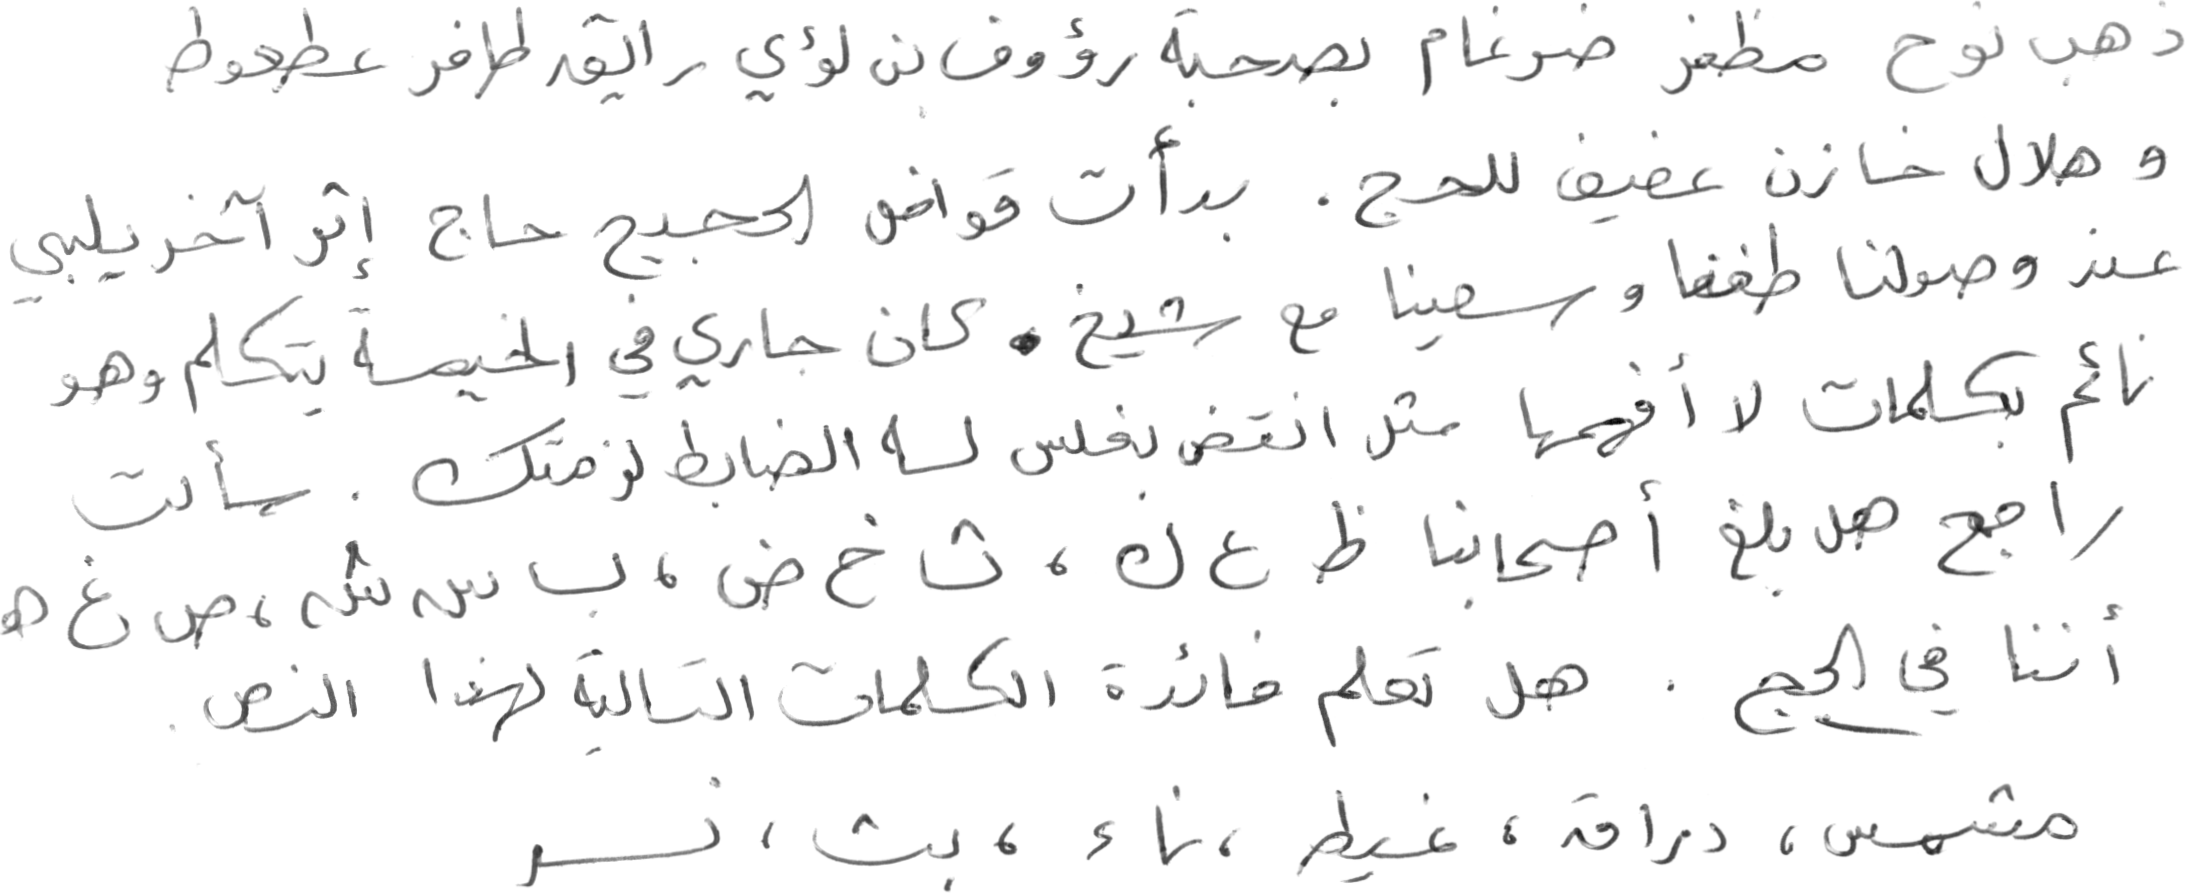 ذهب نوح مظفر ضرغام بصحبة رؤوف بن لؤي رائق ظافر عطعوط
و هلال خازن عفيف للحج . بدأت قوافل الحجيج حاج إثر آخر يلبي
عند وصولنا طفنا و سعينا مع شيخ . كان جاري في الخيمة يتكلم وهو
نائم بكلمات لا أفهمها مثل انتقض بغلس لسه الضابط لزمتك . سألت
راجح هل بلغ أصحابنا ظ ع ك ، ث خ ض ، ب س ش ، ص غ ه
أننا في الحج . هل تعلم فائدة الكلمات التالية لهذا النص .
مشمس ، دراقة ، غيط ، ناء ، بث ، نسر